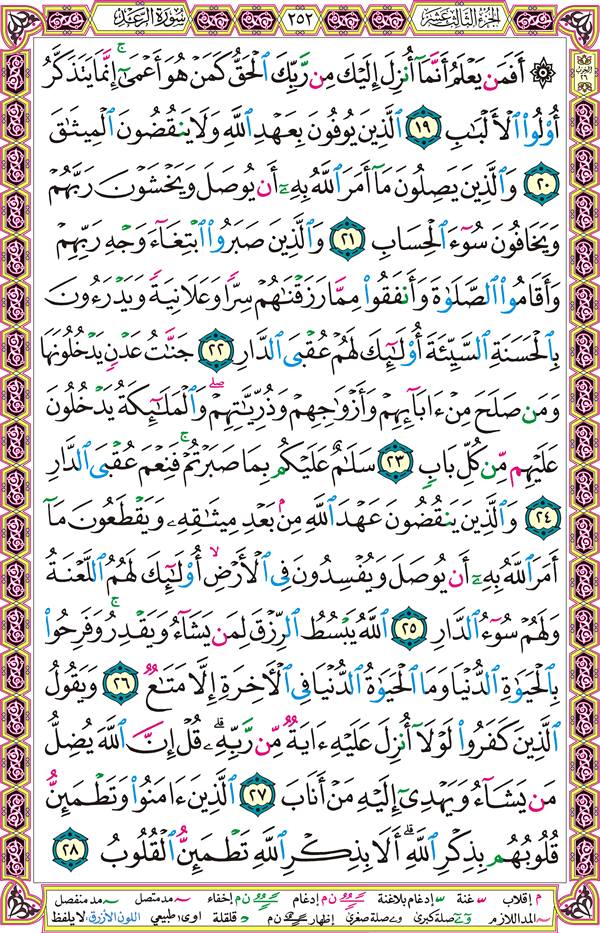 الجزء الثالث عشر ٢٥٢ سورة الرعد
الحزب ٢٦
۞ أَفَمَن يَعْلَمُ أَنَّمَآ أُنزِلَ إِلَيْكَ مِن رَّبِّكَ ٱلْحَقُّ كَمَنْ هُوَ أَعْمَىٰٓ ۚ إِنَّمَا يَتَذَكَّرُ
أُو۟لُوا۟ ٱلْأَلْبَـٰبِ ١٩ ٱلَّذِينَ يُوفُونَ بِعَهْدِ ٱللَّهِ وَلَا يَنقُضُونَ ٱلْمِيثَـٰقَ
٢٠ وَٱلَّذِينَ يَصِلُونَ مَآ أَمَرَ ٱللَّهُ بِهِۦٓ أَن يُوصَلَ وَيَخْشَوْنَ رَبَّهُمْ
وَيَخَافُونَ سُوٓءَ ٱلْحِسَابِ ٢١ وَٱلَّذِينَ صَبَرُوا۟ ٱبْتِغَآءَ وَجْهِ رَبِّهِمْ
وَأَقَامُوا۟ ٱلصَّلَوٰةَ وَأَنفَقُوا۟ مِمَّا رَزَقْنَـٰهُمْ سِرًّا وَعَلَانِيَةً وَيَدْرَءُونَ
بِٱلْحَسَنَةِ ٱلسَّيِّئَةَ أُو۟لَـٰٓئِكَ لَهُمْ عُقْبَى ٱلدَّارِ ٢٢ جَنَّـٰتُ عَدْنٍ يَدْخُلُونَهَا
وَمَن صَلَحَ مِنْ ءَابَآئِهِمْ وَأَزْوَٰجِهِمْ وَذُرِّيَّـٰتِهِمْ ۖ وَٱلْمَلَـٰٓئِكَةُ يَدْخُلُونَ
عَلَيْهِم مِّن كُلِّ بَابٍ ٢٣ سَلَـٰمٌ عَلَيْكُم بِمَا صَبَرْتُمْ ۚ فَنِعْمَ عُقْبَى ٱلدَّارِ
٢٤ وَٱلَّذِينَ يَنقُضُونَ عَهْدَ ٱللَّهِ مِنۢ بَعْدِ مِيثَـٰقِهِۦ وَيَقْطَعُونَ مَآ
أَمَرَ ٱللَّهُ بِهِۦٓ أَن يُوصَلَ وَيُفْسِدُونَ فِى ٱلْأَرْضِ ۙ أُو۟لَـٰٓئِكَ لَهُمُ ٱللَّعْنَةُ
وَلَهُمْ سُوٓءُ ٱلدَّارِ ٢٥ ٱللَّهُ يَبْسُطُ ٱلرِّزْقَ لِمَن يَشَآءُ وَيَقْدِرُ ۚ وَفَرِحُوا۟
بِٱلْحَيَوٰةِ ٱلدُّنْيَا وَمَا ٱلْحَيَوٰةُ ٱلدُّنْيَا فِى ٱلْـَٔاخِرَةِ إِلَّا مَتَـٰعٌ ٢٦ وَيَقُولُ
ٱلَّذِينَ كَفَرُوا۟ لَوْلَآ أُنزِلَ عَلَيْهِ ءَايَةٌ مِّن رَّبِّهِۦ ۗ قُلْ إِنَّ ٱللَّهَ يُضِلُّ
مَن يَشَآءُ وَيَهْدِىٓ إِلَيْهِ مَنْ أَنَابَ ٢٧ ٱلَّذِينَ ءَامَنُوا۟ وَتَطْمَئِنُّ
قُلُوبُهُم بِذِكْرِ ٱللَّهِ ۗ أَلَا بِذِكْرِ ٱللَّهِ تَطْمَئِنُّ ٱلْقُلُوبُ ٢٨
م إقلاب غنة إدغام بلاغنة ن م إدغام ن م إخفاء مد متصل مد منفصل
مد اللازم صلة كبرى صلة صغرى إظهار ن م قلقلة اوى طبيعي اللون الأزرق لا يلفظ